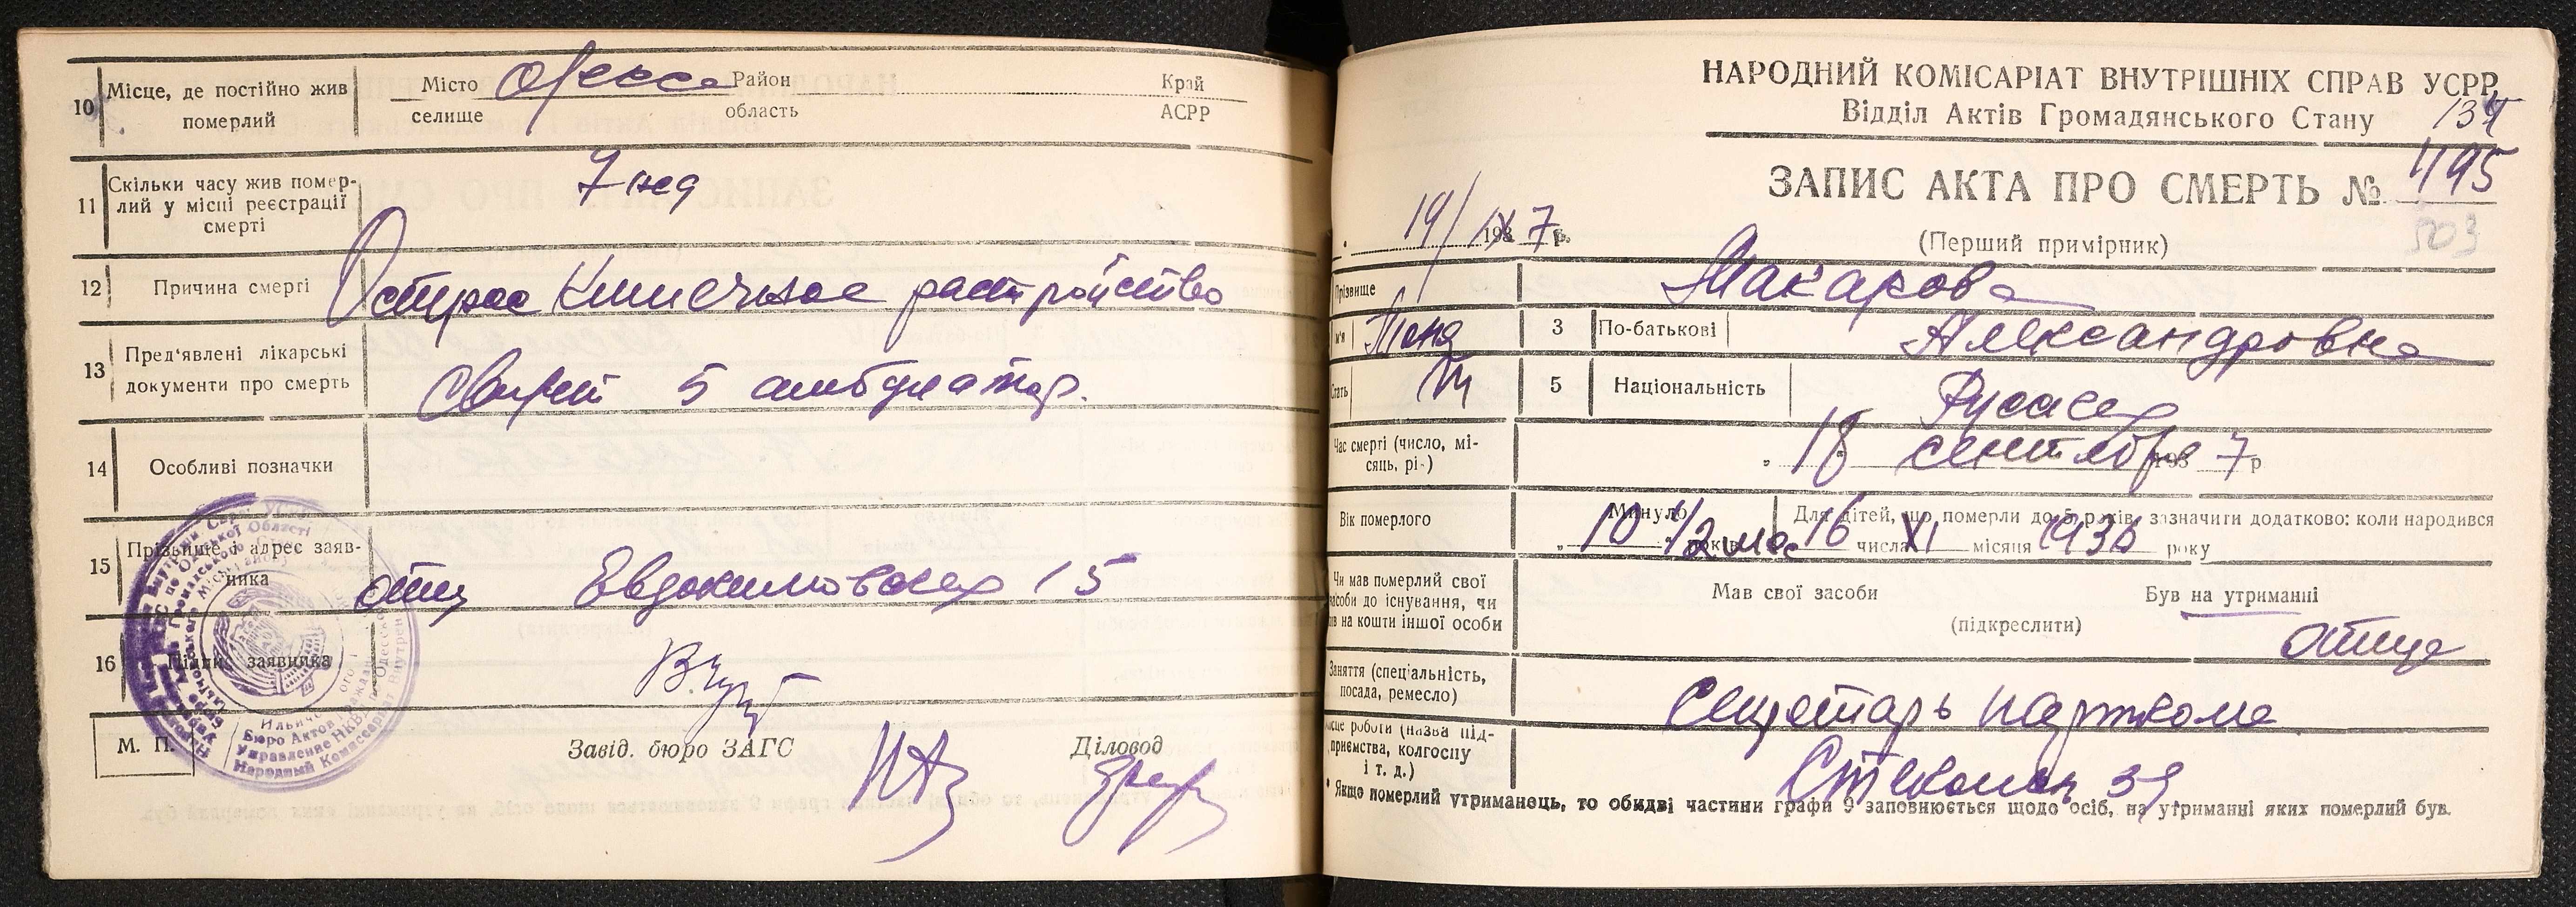 10 Місце, де постійно жив померлий
Місто Одесса Район Край
селище область АСРР
11 Скільки часу жив помер-
лий у місці реєстрації
смерті
7 нед
12 Причина смерті Острое Кишечное расстройство
13 Пред'явлені лікарські
документи про смерть
5 амбулатор.
14 Особливі позначки
15 Прізвище і адрес заяв-
ника
отец Евдокимовская 15
16 Підпис заявника
М. П. Завід. бюро ЗАГС Діловод
НАРОДНИЙ КОМІСАРІАТ ВНУТРІШНІХ СПРАВ УСРР
Відділ Актів Громадянського Стану 134
ЗАПИС АКТА ПРО СМЕРТЬ № 495
503
19/IX 1937 р. (Перший примірник)
Прізвище Макарова
3 По-батькові Александровна
Стать 5 Національність Русская
Час смерті (число, мі-
сяць, рі-)
„ 18 сентября 193 7 р
Вік померлого
Минуло 10 1/2 мес років
Для дітей, що померли до 5 років, зазначити додатково: коли народився
16 числа XI місяця 1936 року
Чи мав померлий свої
засоби до існування, чи
був на кошти іншої особи
Мав свої засоби Був на утриманні
(підкреслити)
отца
Заняття (спеціальність,
посада, ремесло)
Секретарь парткома
Місце роботи (назва під-
приємства, колгоспу
і т. д.)
39
* Якщо померлий утриманець, то обидві частини графи 9 заповнюється щодо осіб, на утриманні яких померлий був.